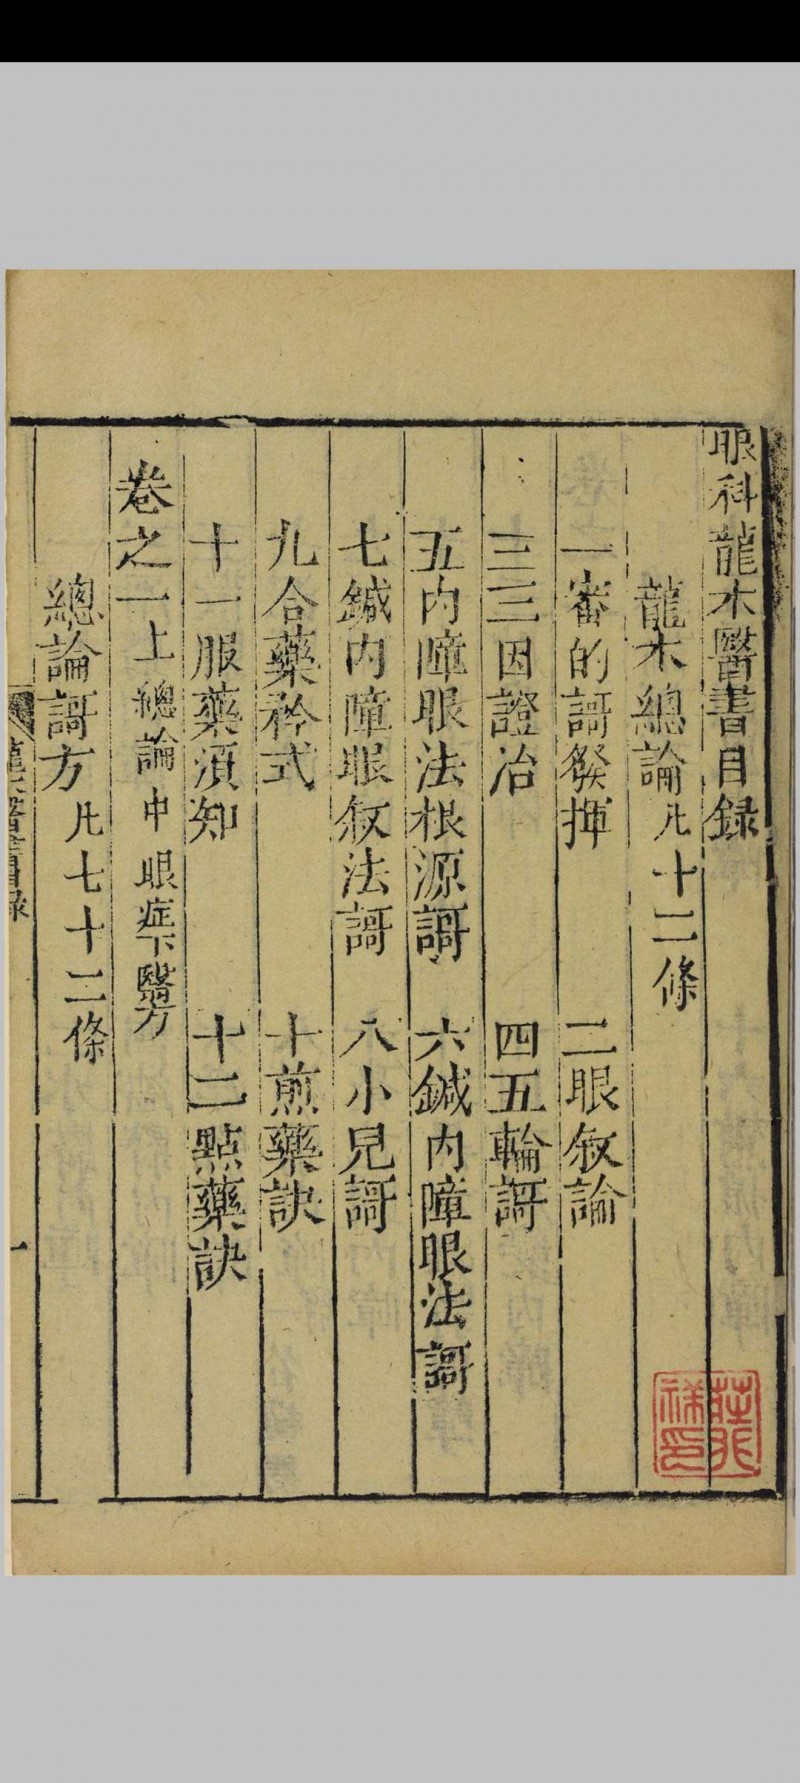 眼科龍木醫書目録
龍木總論凡十二條
一審的謌發揮 二眼叙論
三三因證治 四五輪謌
五内障眼法根源謌 六鍼内障眼法謌
七鍼内障眼叙法謌 八小兒謌
九合藥矜式 十煎藥訣
十一服藥須知 十二點藥訣
卷之一上總論中眼症下醫方
總論謌方凡七十二條
一